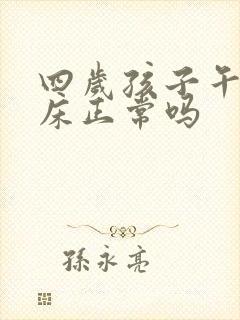 四歲孩子午
床正常吗
孫永亮